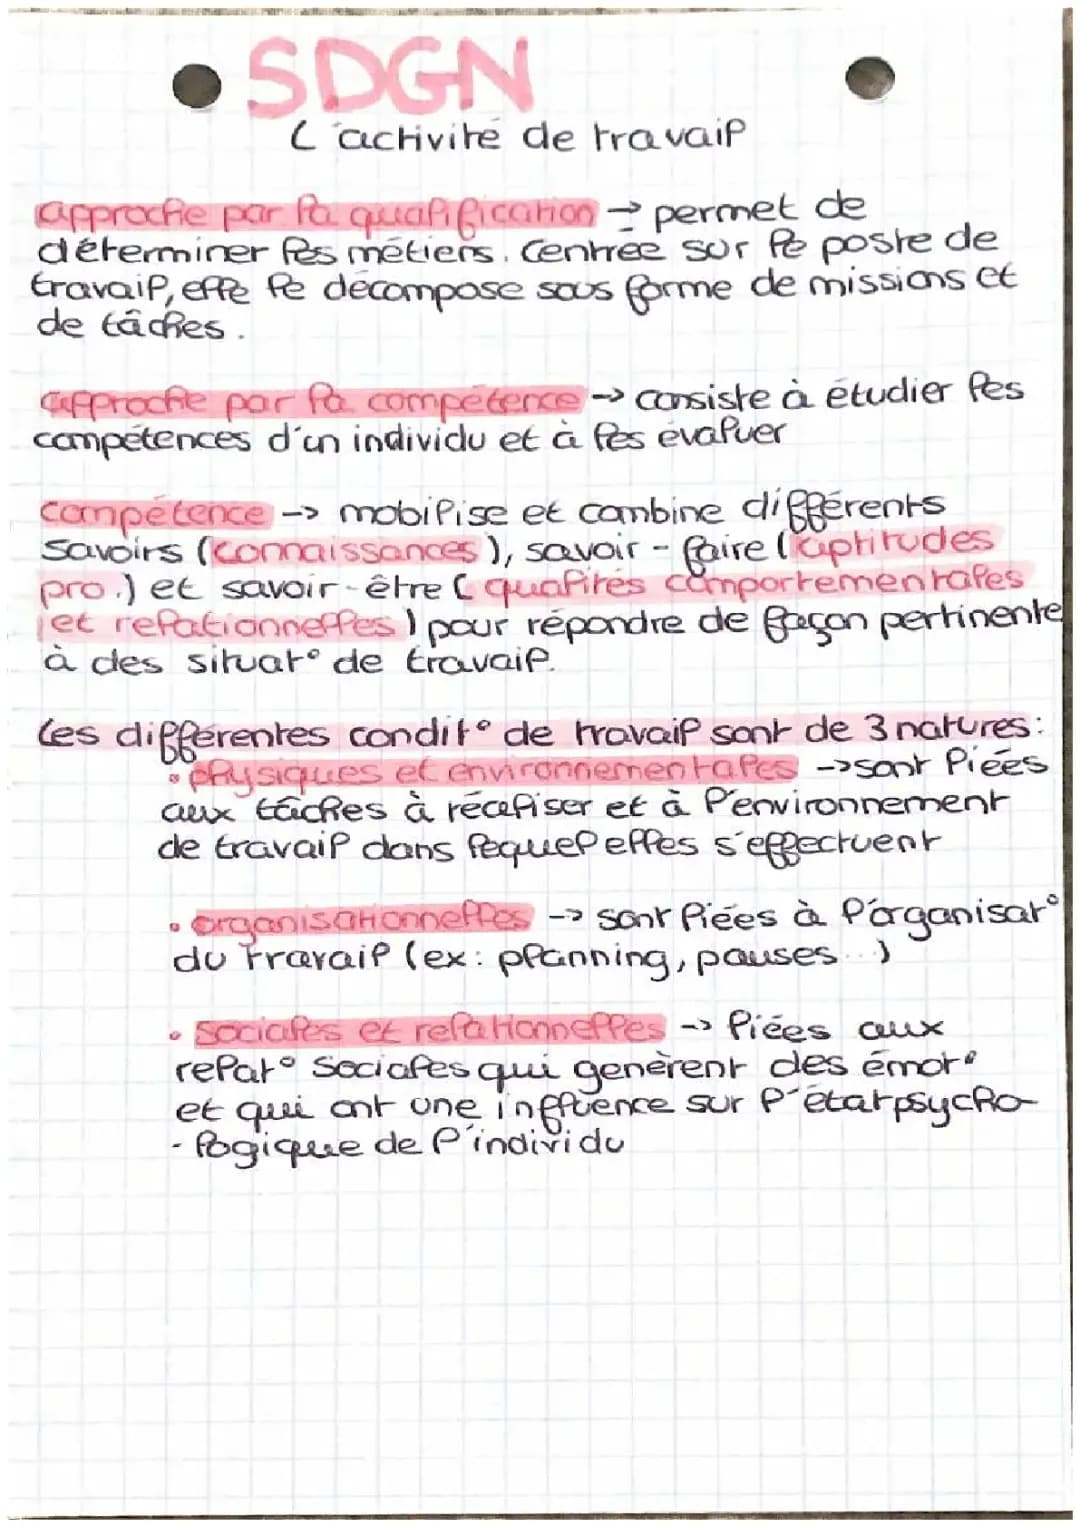 SDGN
L'activité de travail
approche par la qualification → permet de
déterminer les métiers. Centrée sur le poste de
travail, elle le décompose sous forme de missions et
de tâches.
approche par la compétence → consiste à étudier les
compétences d'un individu et à les évaluer
compétence → mobilise et combine différents
savoirs (connaissances), savoir-faire (aptitudes
pro.) et savoir-être (qualités comportementales
et relationnelles) pour répondre de façon pertinente
à des situat° de travail.
Les différentes condit° de travail sont de 3 natures:
• physiques et environnementales → sont liées
aux tâches à réaliser et à l'environnement
de travail dans lequel elles s'effectuent
• organisationnelles → sont liées à l'organisat°
du travail (ex: planning, pauses...)
• sociales et relationnelles → liées aux
relat° sociales qui génèrent des émot°
et qui ont une influence sur l'état psycho-
-logique de l'individu